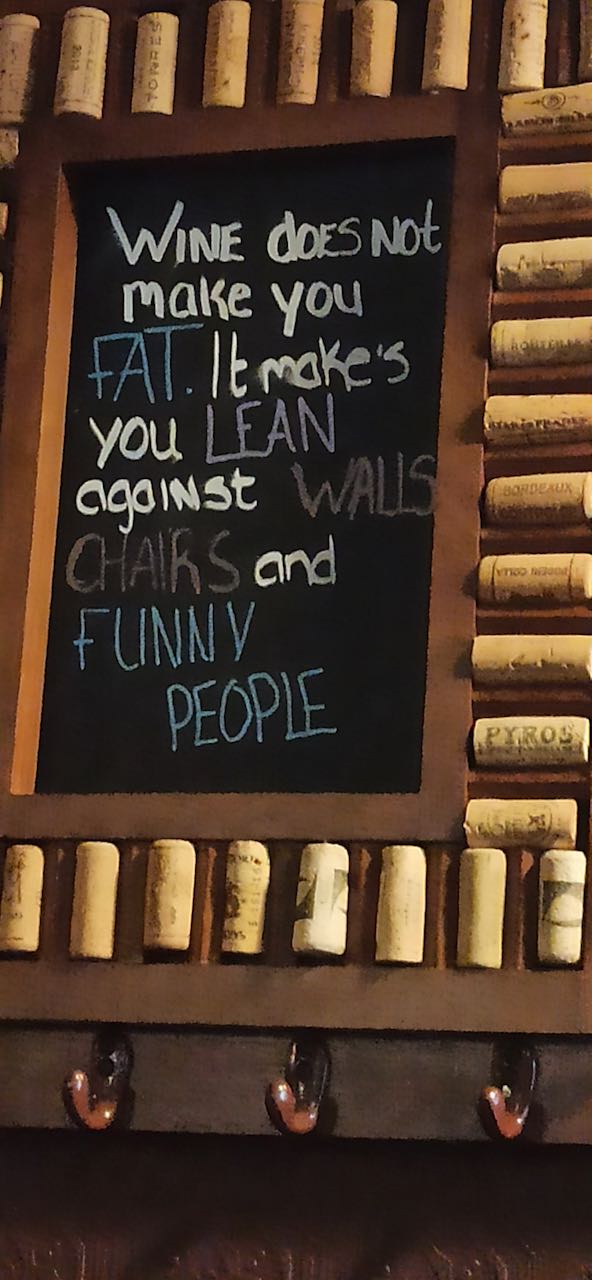 TORRES
WINE does Not
make you
FAT. It make's
you LEAN
against WALLS
CHAIRS and
FUNNY
PEOPLE
BORDEAUX
PYROS